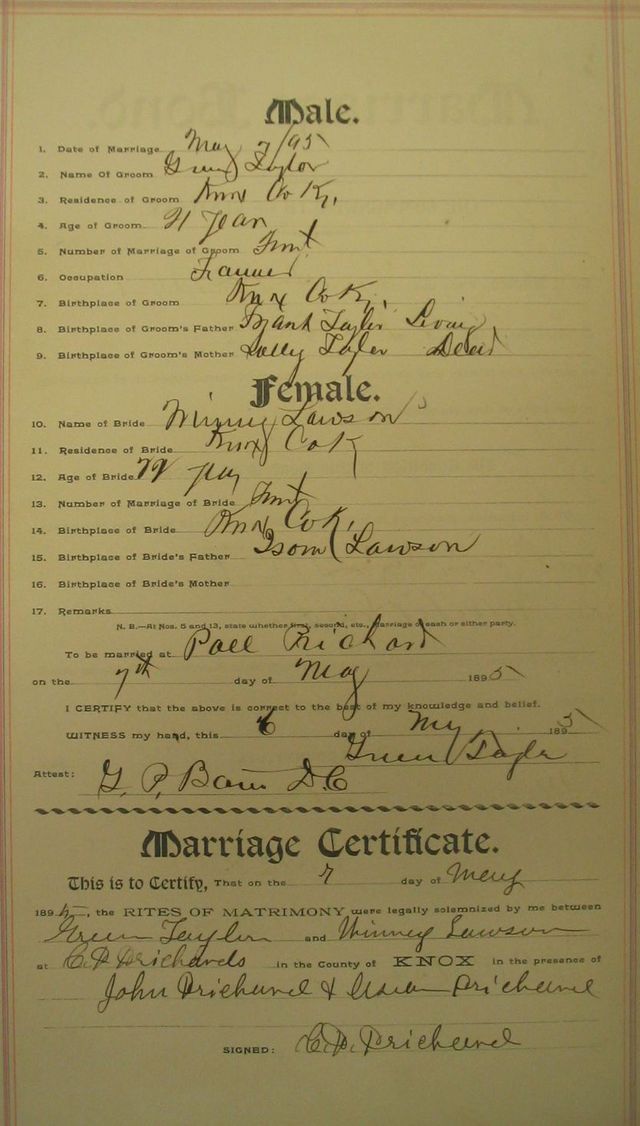 Male.
1. Date of Marriage May 7/95
2. Name Of Groom Green Taylor
3. Residence of Groom Knox Co Ky,
4. Age of Groom 21 year
5. Number of Marriage of Groom First
6. Occupation Farmer
7. Birthplace of Groom Knox Co Ky,
8. Birthplace of Groom's Father Frank Taylor Living
9. Birthplace of Groom's Mother Sally Taylor Dead
Female.
10. Name of Bride Winney Lawson
11. Residence of Bride Knox Co K
12. Age of Bride 22
13. Number of Marriage of Bride First
14. Birthplace of Bride Knox Co K,
15. Birthplace of Bride's Father Isom Lawson
16. Birthplace of Bride's Mother
17. Remarks
N. B.—At Nos. 5 and 13, state whether first, second, etc., marriage of each or either party.
To be married at Prichard
on the 7th day of May 1895
I CERTIFY that the above is correct to the best of my knowledge and belief.
WITNESS my hand, this 6 day of My 1895
Green Tayler
Attest: G. P. D.C
Marriage Certificate.
This is to Certify, That on the 7 day of May
1895, the RITES OF MATRIMONY were legally solemnized by me between
Green Taylor and Winney Lawson
at C. P. Prichards in the County of KNOX in the presence of
John Prichard & Prichard
SIGNED: C. P. Prichard